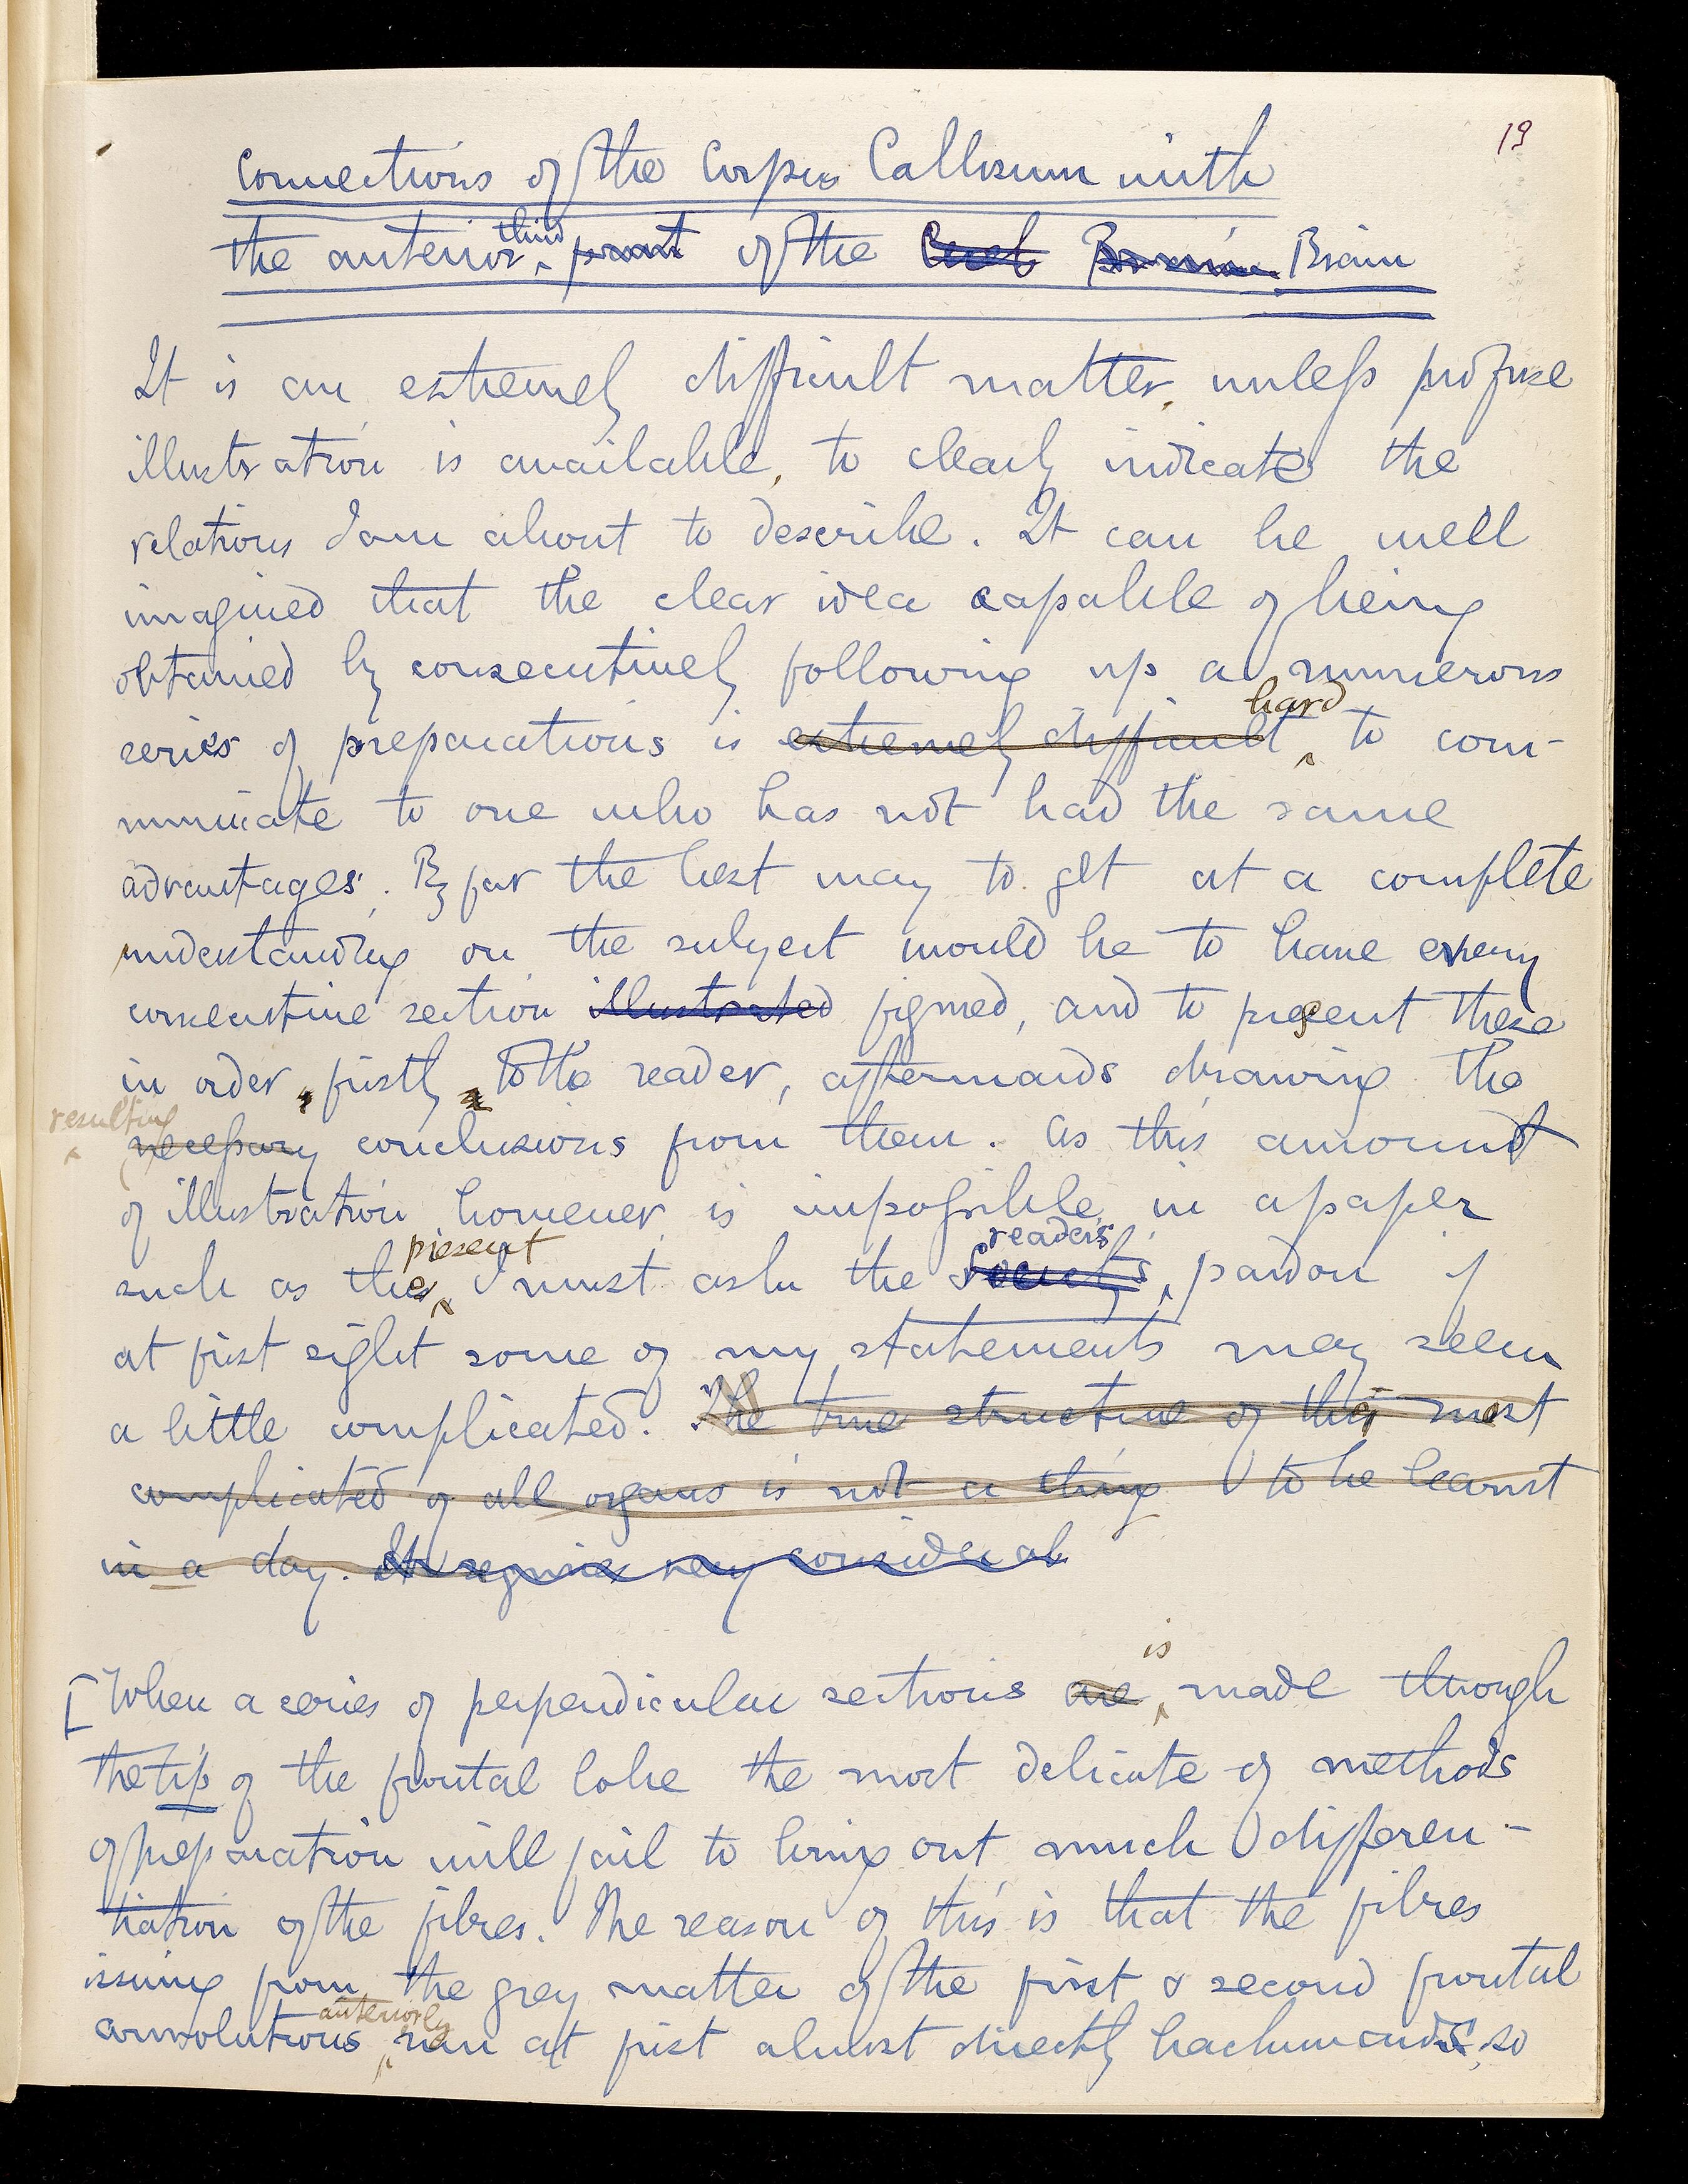 19
Connections of the Corpus Callosum with
the anterior third part of the Cereb Brain Brain
It is an extremely difficult matter, unless profuse
illustration is available, to clearly indicate the
relations I am about to describe. It can be well
imagined that the clear idea capable of being
obtained by consecutively following up a numerous
series of preparations is extremely difficult hard to com-
municate to one who has not had the same
advantages. By far the best way to get at a complete
understanding on the subject would be to have every
consecutive section illustrated figured, and to present these
in order, firstly, to the reader, afterwards drawing the
resulting necessary conclusions from them. As this amount
of illustration however is impossible in a paper
such as the present I must ask the Society's reader's pardon if
at first sight some of my statements may seem
a little complicated. The true structure of this most
complicated of all organs is not a thing to be learnt
in a day. It requires very considerab
[When a series of perpendicular sections are is made through
the tip of the frontal lobe the most delicate of methods
of preparation will fail to bring out much differen-
tiation of the fibres. The reason of this is that the fibres
issuing from the grey matter of the first & second frontal
convolutions anteriorly run at first almost directly backwards, so